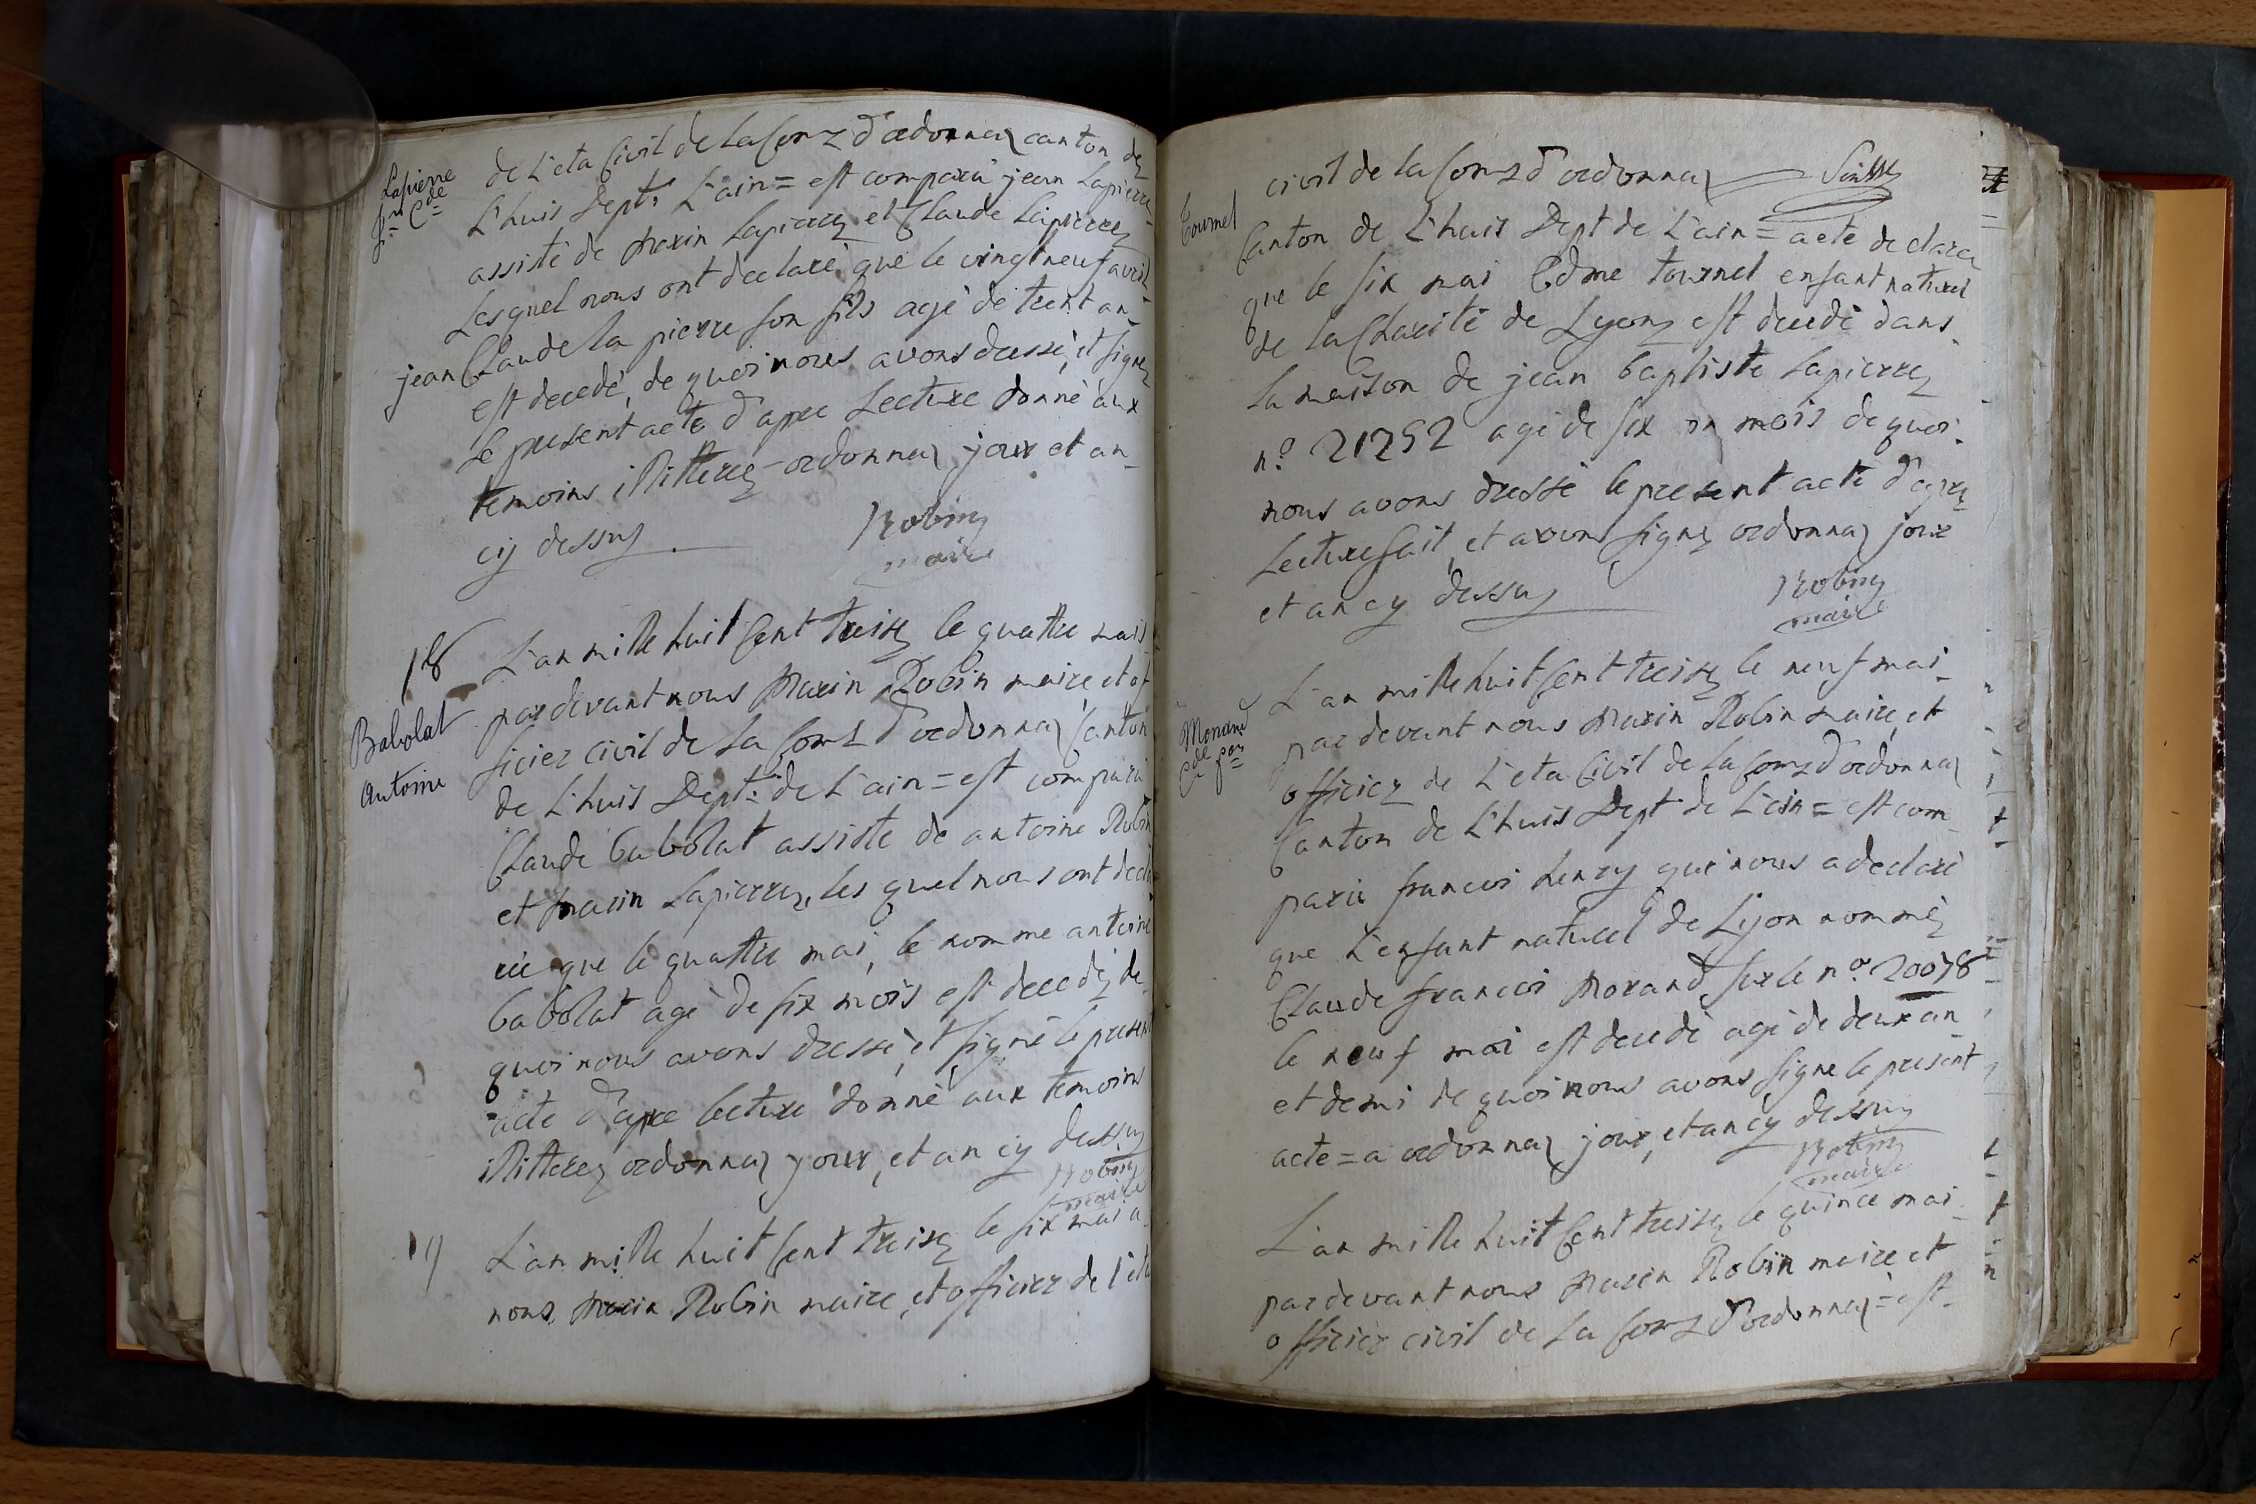 Lapierre
jn Cde
de L'eta Civil de la Com d'ordonnaz canton de
L'huis Dept. L'ain = est comparu jean Lapierre
assisté de Marin Lapierre et Claude Lapierre
Lesquel nous ont declaré que le vingt neuf avril
jean Claude la pierre son fils agé de trent an
est decedé, de quoi nous avons dressé, et signé
Le present acte d'apre Lecture donné aux
temoins illitteré ordonnaz jour et an
cy dessus
Robin
maire
18
Babolat
Antoine
L'an mille huit Cent treise le quattre mai
par devant nous Marin Robin maire et of
ficier civil de la Com d'ordonnaz Canton
de L'huis Dept. de L'ain = est comparu
Claude babolat assiste de antoine Robin
et Marin Lapierre, les quel nous ont decla
ré que le quattre mai, le nomme antoine
babolat agé de six mois est decedé, de
quoi nous avons dressé, et signé le present
acte d'apre lecture donné aux temoins
illitteré ordonnaz jour, et an cy dessus
Robin
maire
19
L'an mille huit Cent treise le six mai a
nous Marin Robin maire, et officier de l'eta
Tournel
civil de la Com d'ordonnaz
Canton de L'huis Dept de L'ain = acte declara
que le six mai Edme tournel enfant naturel
de la Charité de Lyon est decedé dans
La maison de jean baptiste Lapierre
n.º 21252 agé de six mois de quoi
nous avons dressé le present acte d'apre
Lecture fait, et avons signé ordonnaz jour
et an cy dessus
Robin
maire
Morand
Cde fçois
L'an mille huit Cent treise le neuf mai
par devant nous Marin Robin maire, et
officier de L'eta Civil de la Com d'ordonnaz
Canton de L'huis Dept de L'ain = est com
paru francois henry qui nous a declaré
que L'enfant naturel de Lyon nommé
Claude francois Morand sur le n.º 20078
le neuf mai est decedé agé de deux an
et demi de quoi nous avons signe le present
acte = a ordonnaz jour, et an cy dessus
Robin
maire
L'an mille huit Cent treise le quince mai
par devant nous Marin Robin maire et
officier civil de la Com d'ordonnaz = est